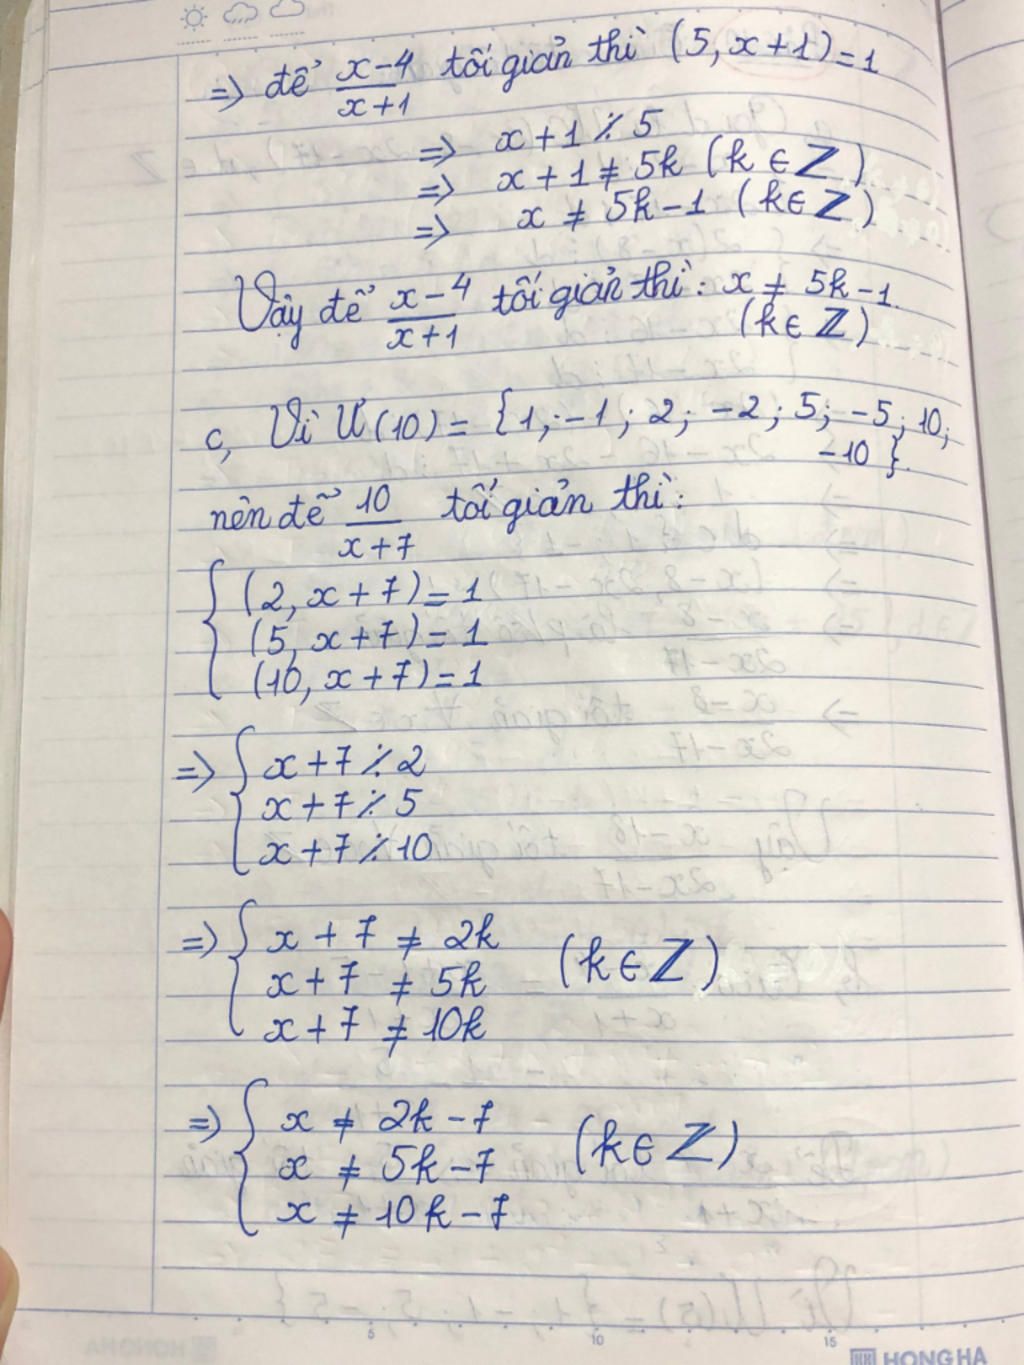 => để x-4/x+1 tối giản thì (5, x+1) = 1
=> x + 1 ⋮̸ 5
=> x + 1 ≠ 5k (k ∈ Z)
=> x ≠ 5k - 1 (k ∈ Z)
Vậy để x-4/x+1 tối giản thì: x ≠ 5k - 1.
(k ∈ Z)
c, Vì Ư(10) = {1; -1; 2; -2; 5; -5; 10;
-10}.
nên để 10/x+7 tối giản thì:
(2, x + 7) = 1
(5, x + 7) = 1
(10, x + 7) = 1
=> { x + 7 ⋮̸ 2
x + 7 ⋮̸ 5
x + 7 ⋮̸ 10
=> { x + 7 ≠ 2k
x + 7 ≠ 5k (k ∈ Z)
x + 7 ≠ 10k
=> { x ≠ 2k - 7
x ≠ 5k - 7 (k ∈ Z)
x ≠ 10k - 7
5 10 15
HONG HA